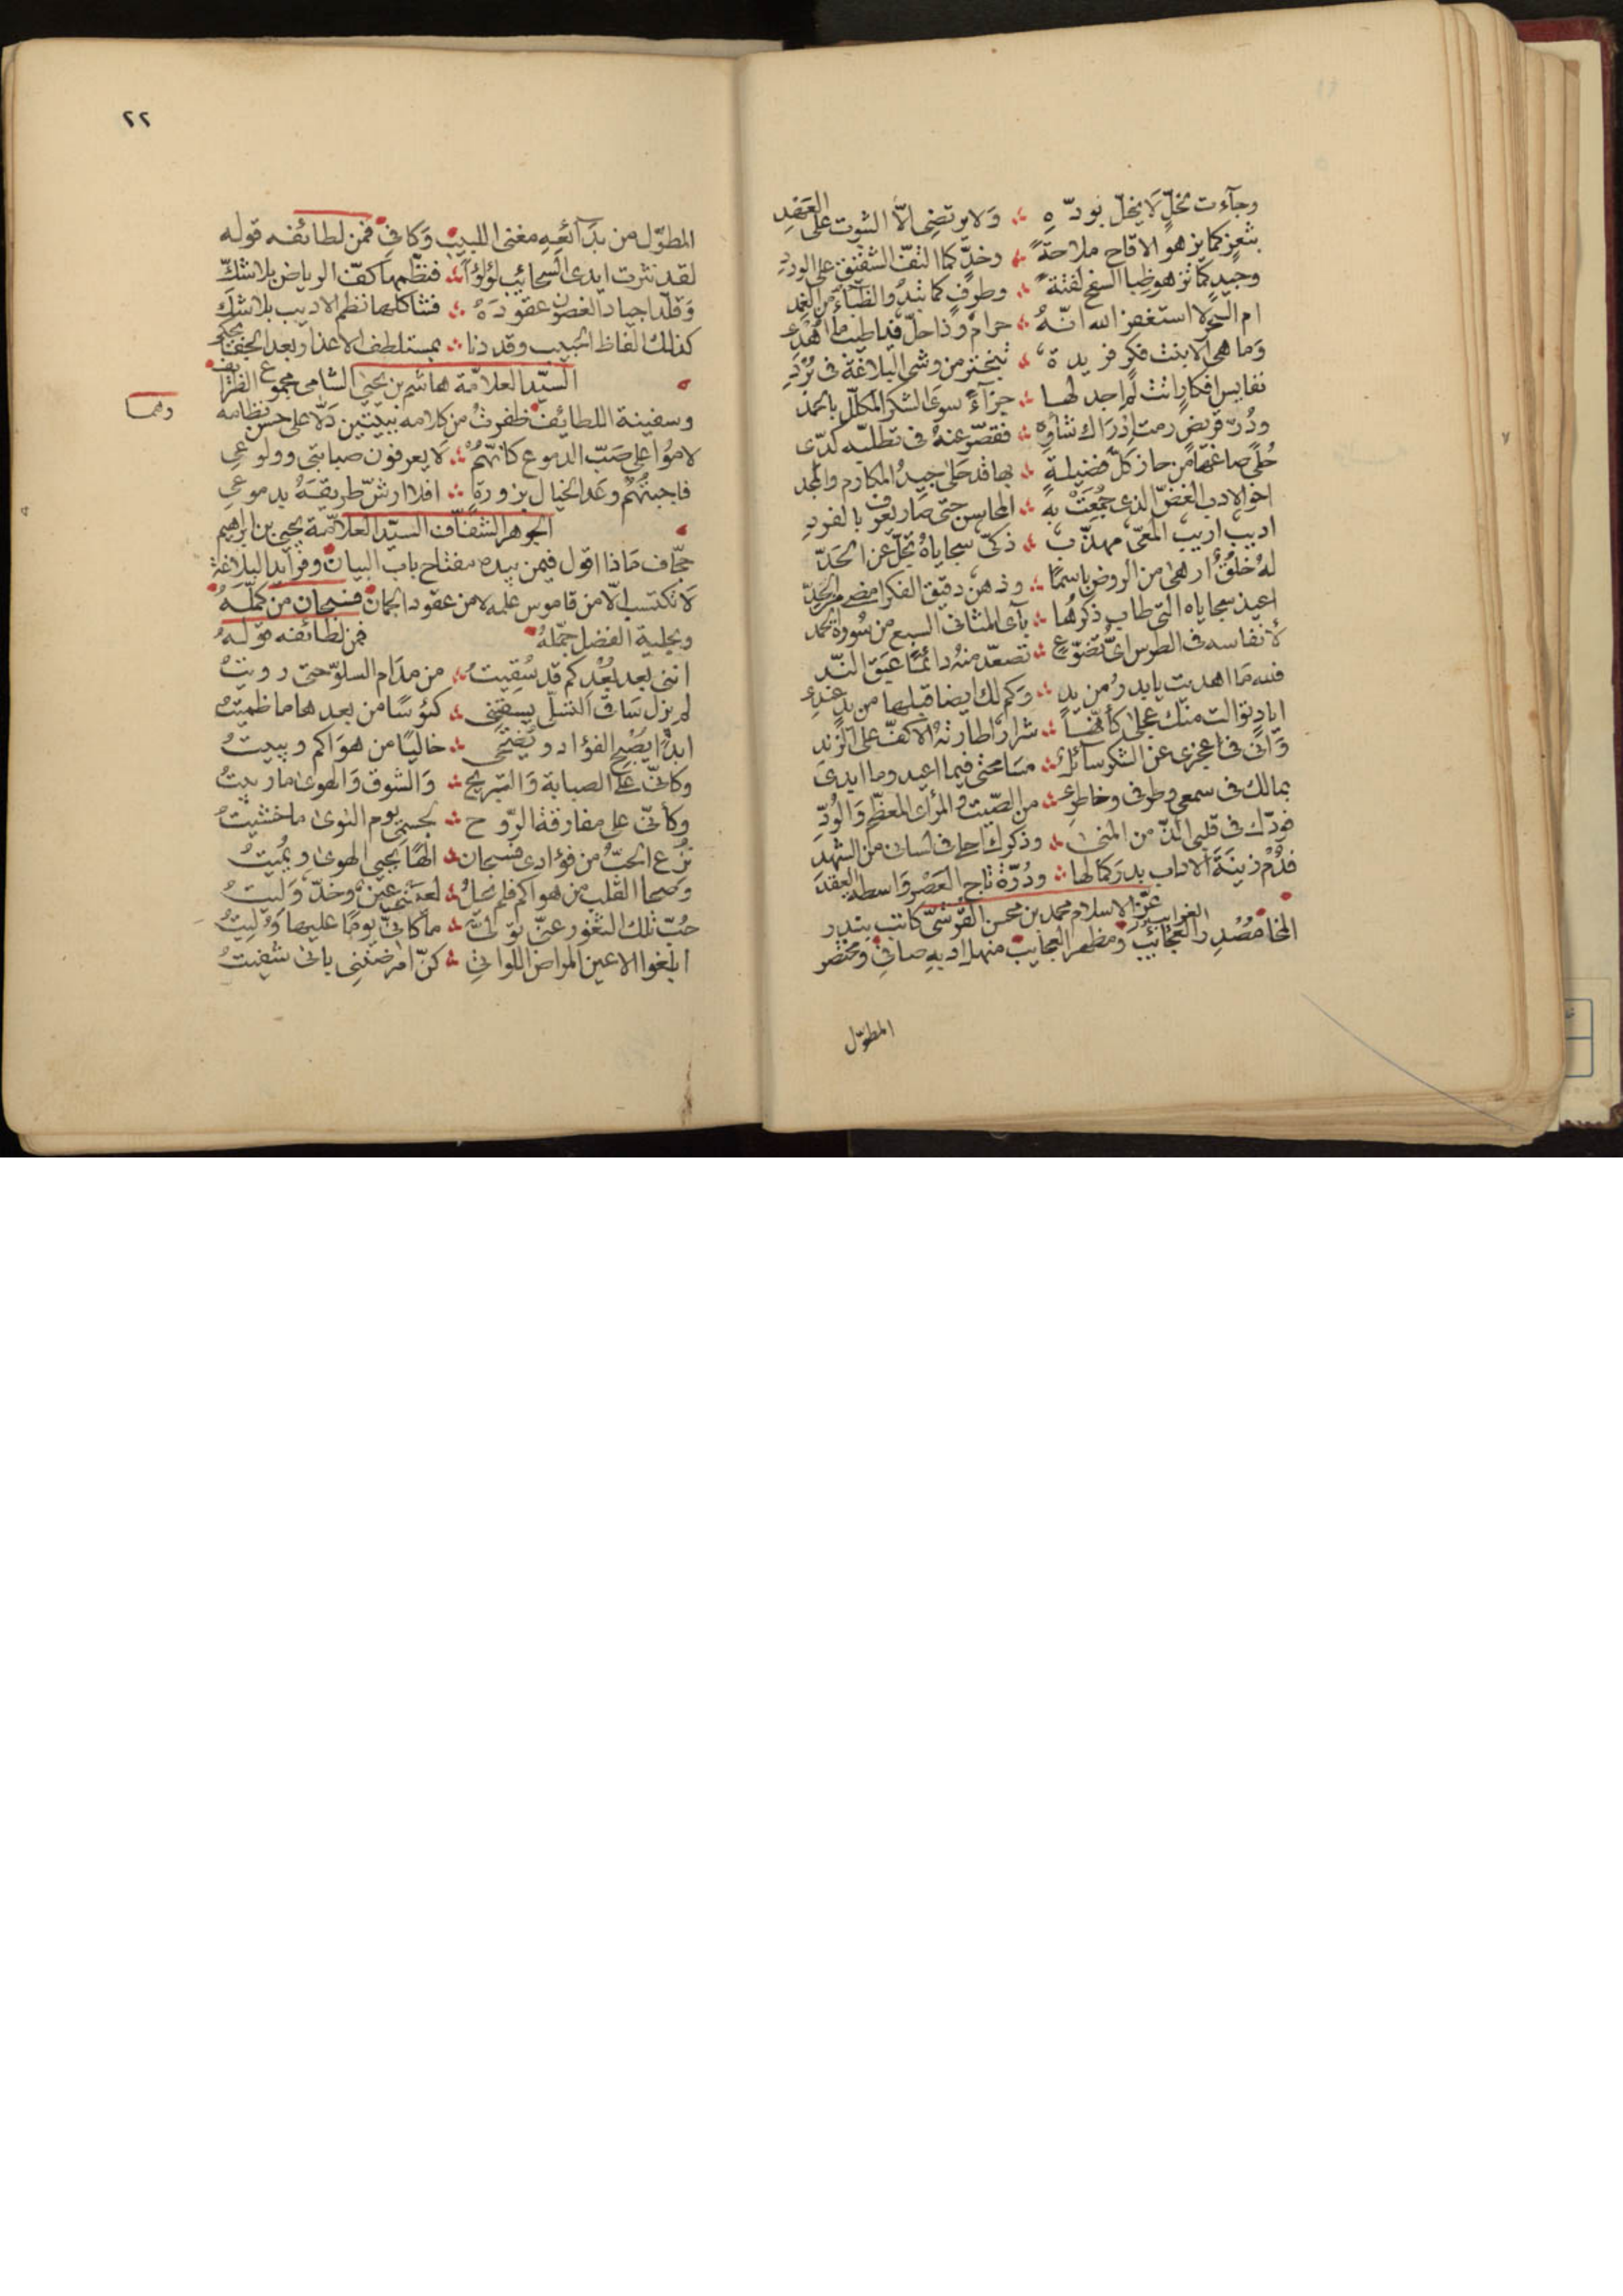 وجآءت بخلٍّ لا يخلّ بودّه ∴ ولا يرتضى الّا الثبوت على العقد
بثغر كما يزهو الاقاح ملاحة ∴ وخدٍّ كما التفّ الشقيق على الورد
وجيد كما تزهو ظبا السفح لفتة ∴ وطرفٍ كما تبدو الظباء من الغمد
ام السحر لا استغفر الله انّهُ ∴ حرام وذا حلّ فيا طيب ما اهدى
وما هى الّا بنت فكر فريدة ∴ تبختر من وشى البلاغة فى برد
نفايس افكار اتت لم اجد لها ∴ جزآءً سوى الشكر المكلّل بالحمد
ودُرّ قريض رمت ادراك شأوه ∴ فقصّر عنهُ فى تطلّبه كدّى
حُلًى صاغها من حاز كلّ فضيلة ∴ بها قد حَلى جيدُ المكارم والمجد
اخو الادب الغضّ الذى جُمعَتْ به ∴ المحاسن حتى صار يعرف بالفرد
اديب اريب المعىّ مهذّب ∴ ذكىّ سجاياهُ تجلّ عن الحدّ
لهُ خلُقٌ ازهى من الروض باسمًا ∴ وذهن دقيق الفكر امضى من الحدّ
اعيذ سجاياه التى طاب ذكرُها ∴ بآى المثانى السبع من سُورة الحمد
لأنفاسه فى الطرس اىّ تضوّع ∴ تصعّد منهُ دائمًا عبق الندّ
فلله ما اهديت يا بدرُ من يدٍ ∴ وكم لك ايضا قبلها من يدٍ عندى
ايادٍ توالت منك عجلى كأنّها ∴ شرار اطارتهُ الاكفّ على الزند
وانّى فى عجزى عن الشكر سائل ∴ مسامحتى فيما اعيد وما ابدى
بمالك فى سمعى وطرفى وخاطرى ∴ من الصّيت والمرأى المعظّم والودّ
فودّك فى قلبى الذّ من المنى ∴ وذكرك احلى فى لسانى من الشهد
فدُمْ زينَة الاداب بدر كمالها ∴ ودُرّة تاج العصر واسطة العقد
عزّ الاسلام محمد بن محسن القرشىّ كاتب بندر
المخا مصدر الغرايب والعجائب ومظهر العجايب منهل ادبه صافى ومختصر
المطوّل
٢٢
المطوّل من بدَآئعِهِ مغنى اللبيب وكافى فمن لطائفه قوله
لقد نثرت ايدى السحائب لؤلؤاً ∴ فنظّمها كفّ الرياض بلا سلكّ
وقلّد اجياد الغصون عقودَهُ ∴ فشاكلها نظم الاديب بلا شكّ
كذلك الفاظ الحبيب وقد دنا ∴ بمستلطف الاعذار بعد الجفا يحكى
السيّد العلامّة هاشم بن يحيى الشامى مجموع الظرايف
وسفينة اللطايف ظفرتُ من كلامه ببيتين دَلّا على حسن نظامه
وهما
لامُوا على صَبّ الدموع كانّهمُ ∴ لا يعرفون صبابتى وولوعى
فاجبتُهُم وعَد الخيال بزورة ∴ افلا ارشّ طريقَهُ بدموعى
الجوهر الشفّاف السيّد العلامّة يحيى بن ابراهيم
جحّاف ماذا اقول فيمن بيده مفتاح باب البيان وفرايد البلاغة
لا تكتسب الّا من قاموس علمه لا من عقود الجمان فسبحان من كمّلهُ
وبحلية الفضل جمّلهُ فمن لطائفه قولهُ
اننى بعد بُعْدِكم قد سُقِيتُ ∴ من مدام السلوّ حتى رويتُ
لم يزل ساقى التسلّى يسقينى ∴ كئوسًا من بعدها ما ظميتُ
ابدًا يُصْبح الفؤاد ويُضْحى ∴ خاليًا من هواكم ويبيتُ
وكانّى على الصبابة والتبريح ∴ والشوق والهوى ما ربيتُ
وكأنّى على مفارقة الروّح ∴ بجسمى يوم النوى ما خشيتُ
نُزع الحبُّ من فؤادى فسبحان ∴ الهًا يحيى الهوى ويُميتُ
وصحا القلب من هواكم فلم تحلُ ∴ لعينى عين وخدّ وَليتُ
حُبّ تلك الثغور عنّى تولّى ∴ ما كانّى يومًا عليها وُليتُ
ابلغوا الاعين المراض اللواتى ∴ كنّ امرضننى بانى شفيتُ